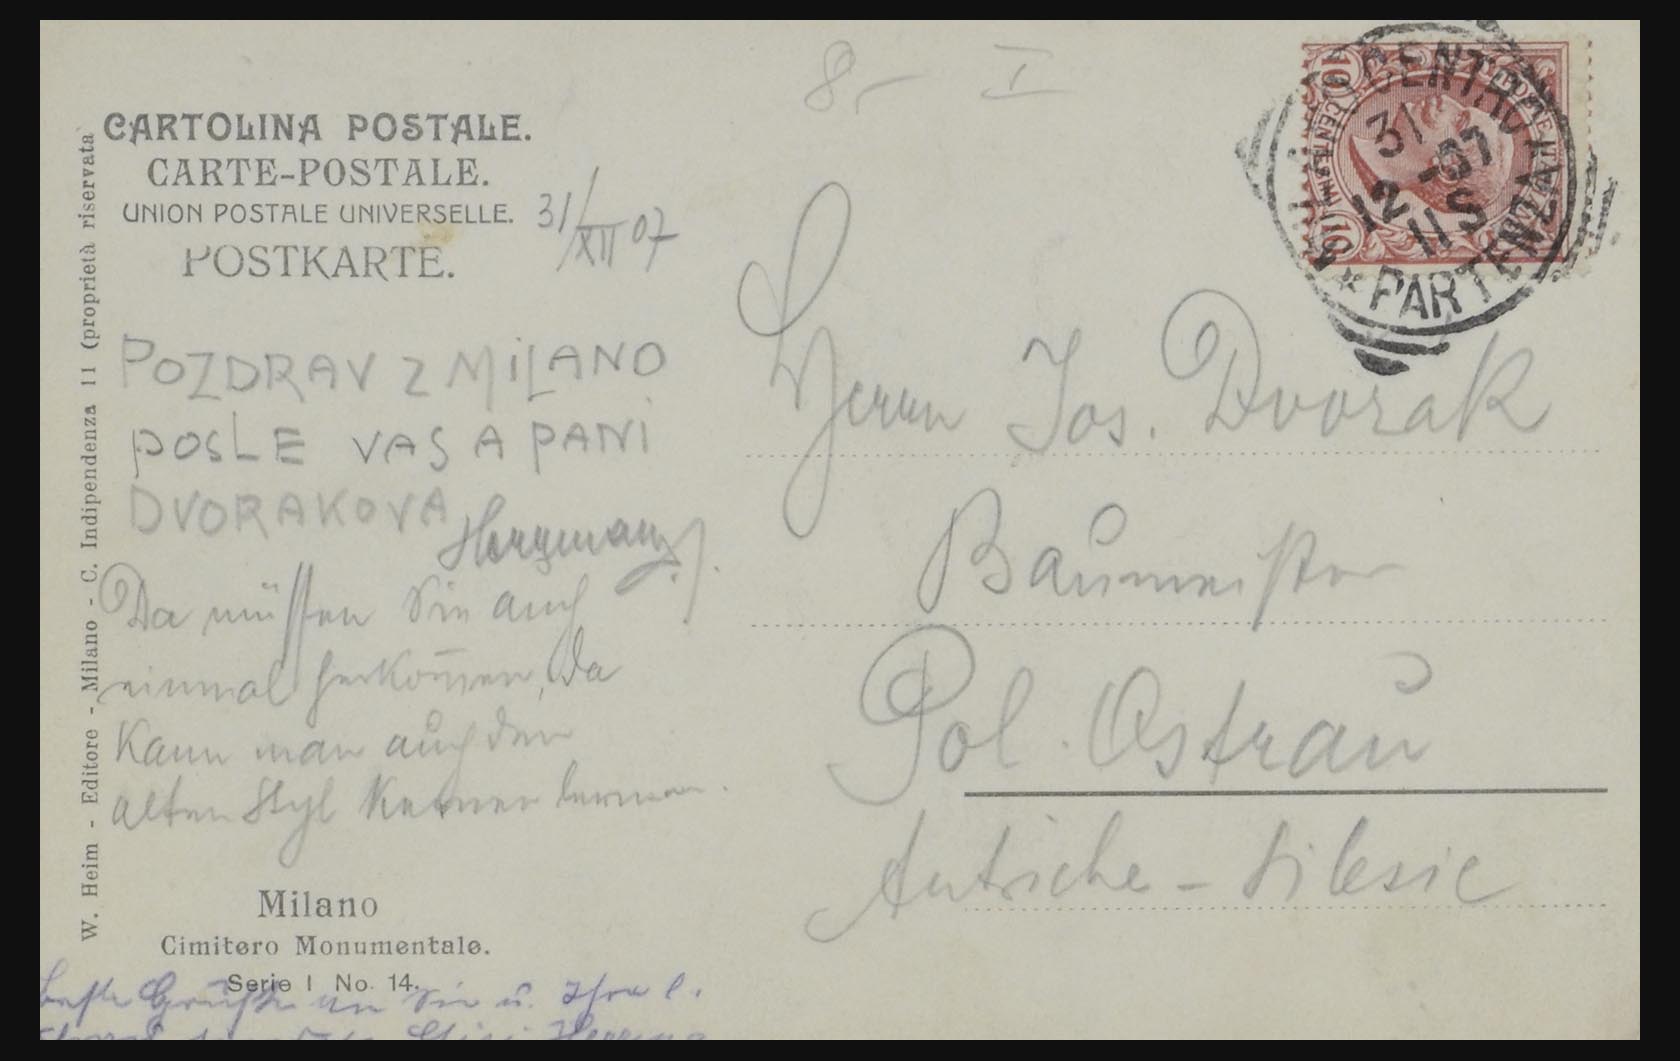 8,- I
CARTOLINA POSTALE.
CARTE-POSTALE.
UNION POSTALE UNIVERSELLE.
POSTKARTE.
31/XII 07
W. Heim - Editore - Milano - C. Indipendenza 11 (proprietà riservata
POZDRAV Z MiLANO
POSLE VAS A PANI
DVORAKOVA
Da müssen Sie auch
einmal herkom̄en, Da
Kann man auch den
alten Styl Kennen lernen.
Milano
Cimitero Monumentale.
Serie I No. 14.
Beste Grüße an Sie u. Ihre l.
CENTRO
31
12 - 07
11 S
* PARTENZA
POSTE ITALIANE
CENTESIMI 10
Herrn Jos. Dvorak
Baumeister
Pol. Ostrau
Autriche - Silesie